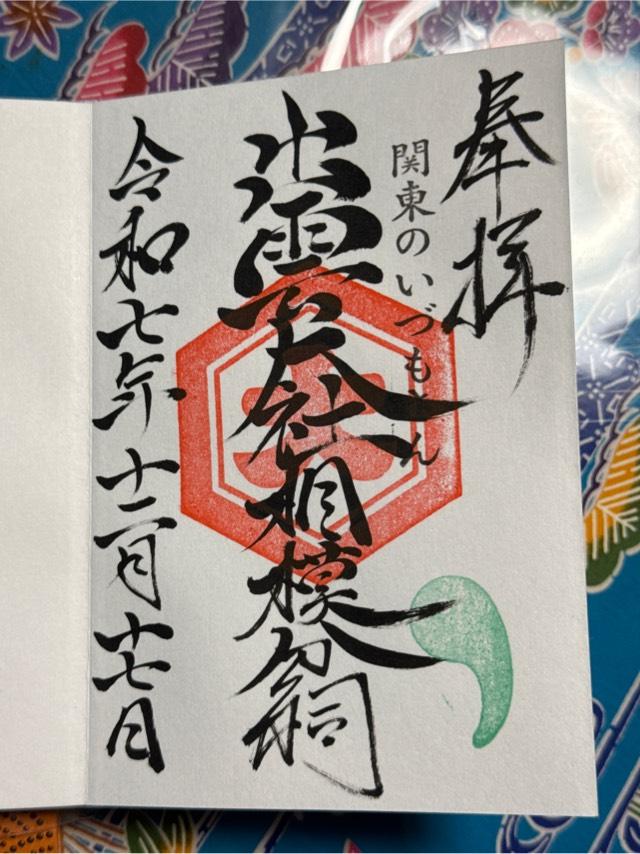 奉拝
関東のいづもさん
出雲大社相模分祠
令和七年十二月十七日